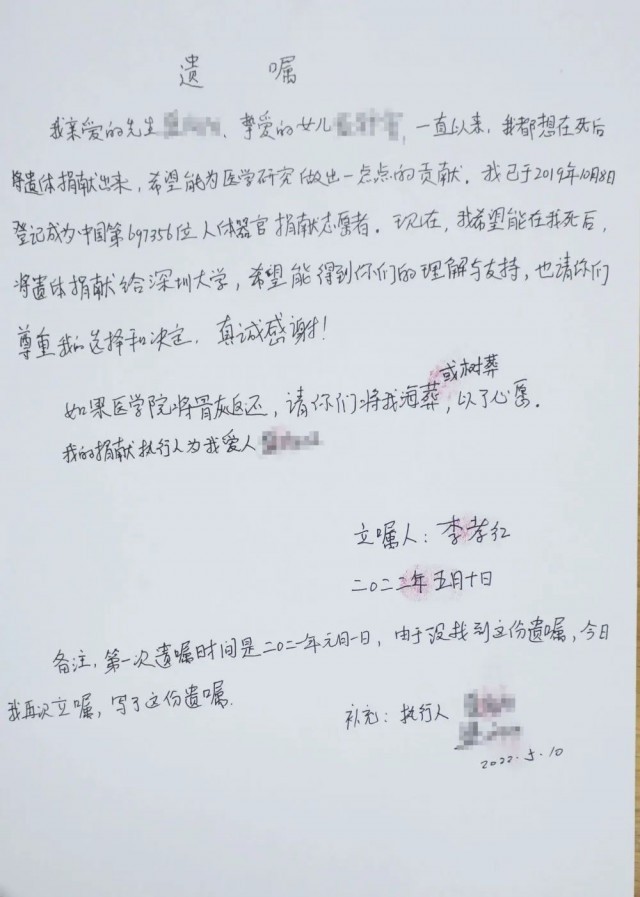 遗 嘱
我亲爱的先生 、挚爱的女儿 ,一直以来,我都想在死后
将遗体捐献出来,希望能为医学研究做出一点点的贡献。我已于2019年10月8日
登记成为中国第697356位人体器官捐献志愿者。现在,我希望能在我死后,
将遗体捐献给深圳大学,希望能得到你们的理解与支持,也请你们
尊重我的选择和决定。真诚感谢!
如果医学院将骨灰返还,请你们将我海葬或树葬,以了心愿。
我的捐献执行人为我爱人
立嘱人:李孝红
二〇二二年五月十日
备注,第一次遗嘱时间是二〇二一年元月一日,由于没找到这份遗嘱,今日
我再次立嘱,写了这份遗嘱.
补充:执行人
2022.5.10